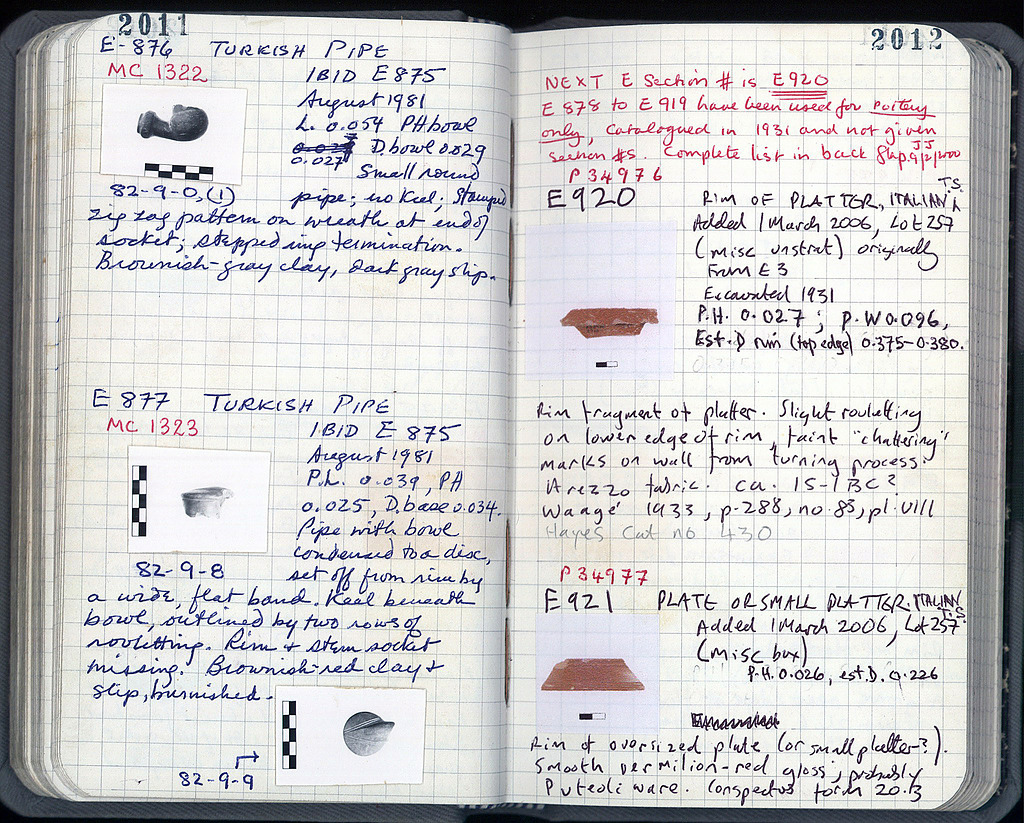 2011
E-876 TURKISH PIPE
MC 1322
IBID E875
August 1981
L. 0.054 PH bowl
D. bowl 0.029
0.027
Small round
82-9-0,(1)
pipe; no Keel; Stamped
zig zag pattern on wreath at end of
socket; stepped ring termination.
Brownish-gray clay, dark gray slip.
E 877 TURKISH PIPE
MC 1323
IBID E 875
August 1981
P.L. 0.039, PH
0.025, D. base 0.034.
Pipe with bowl
condensed to a disc,
82-9-8
set off from rim by
a wide, flat band. Keel beneath
bowl, outlined by two rows of
rouletting. Rim + stem socket
missing. Brownish-red clay +
slip, burnished.
82-9-9
2012
NEXT E Section # is E920
E 878 to E 919 have been used for pottery
only, catalogued in 1931 and not given
section #s. Complete list in back
JJ
9/2/2000
P 34976
E920 RIM OF PLATTER, ITALIAN T.S.
Added 1 March 2006, Lot 257
(misc unstrat) originally
From E 3
Excavated 1931
P.H. 0.027; p.W 0.096,
Est. D rim (top edge) 0.375-0.380.
Rim fragment of platter. Slight rouletting
on lower edge of rim, faint "chattering"
marks on wall from turning process.
Arezzo fabric. ca. 15-1 BC?
Waagé 1933, p. 288, no. 83, pl. VIII
Hayes Cat no 430
P 34977
E921 PLATE OR SMALL PLATTER. ITALIAN T.S.
Added 1 March 2006, Lot 257
(Misc box)
P.H. 0.026, est. D. 0.226
Rim of oversized plate (or small platter?).
Smooth vermilion-red gloss; probably
Puteoli ware. Conspectus form 20.3